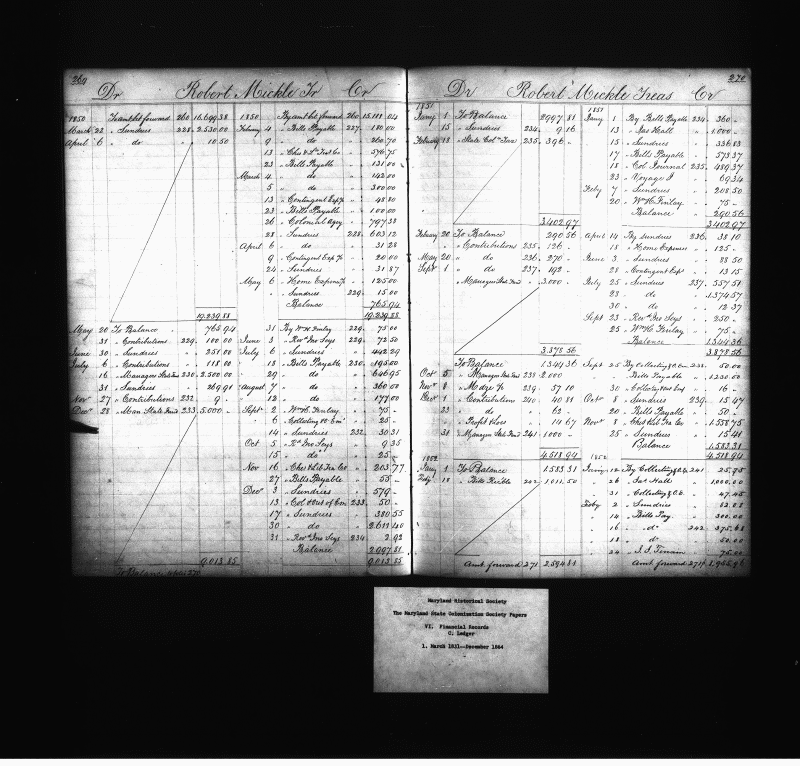 269
Dr Robert Mickle Tr Cr
1850 To amt bt forward 260 16,699.38
March 22 " Sundries 228 2,530.00
April 6 " do 10.50
19,239.88
May 20 To Balance 765.94
31 " Contributions 229 100.00
June 30 " Sundries 251.00
July 6 " Contributions 118.00
16 " Managers State Fund 230 2,500.00
31 " Sundries 269.91
Nov 27 " Contributions 232 9
Decr 28 " Man State Fund 233 5,000 "
9,013.85
To Balance
1850 By amt bt forward 260 15,188.04
February 4 " Bills Payable 227 180.00
9 " do 260.70
13 " Ches & Lib Tra Co 576.75
23 " Bills Payable 131.00
March 4 " do 142.00
5 " do 300.00
13 " Contingent Exps 48.80
23 " Bills Payable 100.00
26 " Colonial Agcy 797.38
28 " Sundries 228 603.12
April 6 " do 31.28
9 " Contingent Exps 20.00
24 " Sundries 31.87
May 6 " Home Expense 125.00
" " Sundries 229 15.00
Balance 765.94
19,239.88
31 By Wm H. Finley 229 75.00
June 3 " Revd Jno Seys 229 72.50
July 6 " Sundries 442.29
18 " Bills Payable 230 195.00
29 " 646.95
August 7 " do 360.00
12 " do 177.00
Sept 2 " Wm H. Finley 75 "
6 " Collecting 25 "
14 " Sundries 232 30.31
Oct 5 " Rd Jno Seys 9.35
15 " do 25 "
Nov 16 " Ches & Lib Tra Co 203.77
27 " Bills Payable 55 "
Decr 3 " Sundries 579 "
13 " Col & Out of Em 233 50 "
17 " Sundries 380.55
30 " do 2,611.40
31 " Revd Jno Seys 234 2.92
Balance 2,997.81
9,013.85
270
Dr Robert Mickle Treas Cr
1851
Jany 1 To Balance 2997.81
15 " Sundries 234 9.16
February 18 " State Col 235 396 "
3,402.97
February 20 To Balance 290.56
" Contributions 235 126 "
May 20 " do 236 270 "
Sept 1 " do 237 192 "
" Managers State Fund 3,000 "
3,878.56
To Balance 1344.36
Oct 5 " Managers State Fund 238 2,000
Nov 8 " 239 57.10
Decr 1 " Contributions 240 40.81
23 " do 62 "
" Profit & Loss 14.67
31 " Managers State Fund 241 1000 "
4,518.94
1852
Jany 1 To Balance 1583.31
Feby 18 " Bills Recble 242 1,011.50
Amt. forward 271 2,594.81
1851
Jany 1 By Bills Payable 234 360 "
13 " Jas Hall 1,000 "
15 " Sundries 336.83
17 " Bills Payable 573.37
18 " Col Journal 235 489.37
23 " Voyage 69.34
Feby 7 " Sundries 208.50
20 " Wm H. Finley 75 "
Balance 290.56
3,402.97
April 14 By Sundries 236 38.10
18 " Home Expenses 125 "
June 3 " Sundries 88.50
28 " Contingent Exps 13.15
July 25 " Sundries 237 557.51
28 " do 1,374.57
30 " do 12.37
Sept 23 " Revd Jno Seys 250 "
25 " Wm H. Finley 75 "
Balance 1344.36
3,878.56
Sept 25 By Collecting 238 50.00
" Bills Payable 1,230.00
30 " 16 "
Oct 8 " Sundries 239 15.47
20 " Bills Payable 50 "
Nov 8 " Ches & Lib Tra Co 1,558.75
25 " Sundries 15.41
Balance 1,583.31
4,518.94
1852
Jany 12 By Collecting 241 25.95
26 " Jas Hall 1000.00
31 " Collecting 47.45
Feby 2 " Sundries 52.02
14 " Bills Pay 300.00
16 " do 242 375.68
18 " do 50.00
24 " 75.00
Amt. forward 271
Maryland Historical Society
The Maryland State Colonization Society Papers
VI. Financial Records
C. Ledger
1. March 1831--December 1864